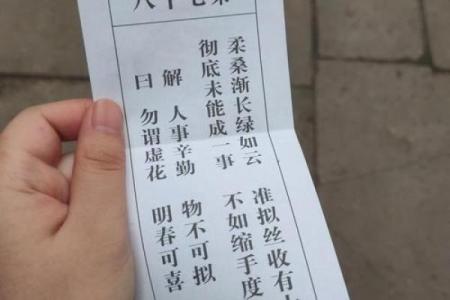 第七十八
柔桑渐长绿如云 准拟丝收有
彻底未能成一事 不如缩手度
解曰
人事辛勤 物不可拟
勿谓虚花 明春可喜